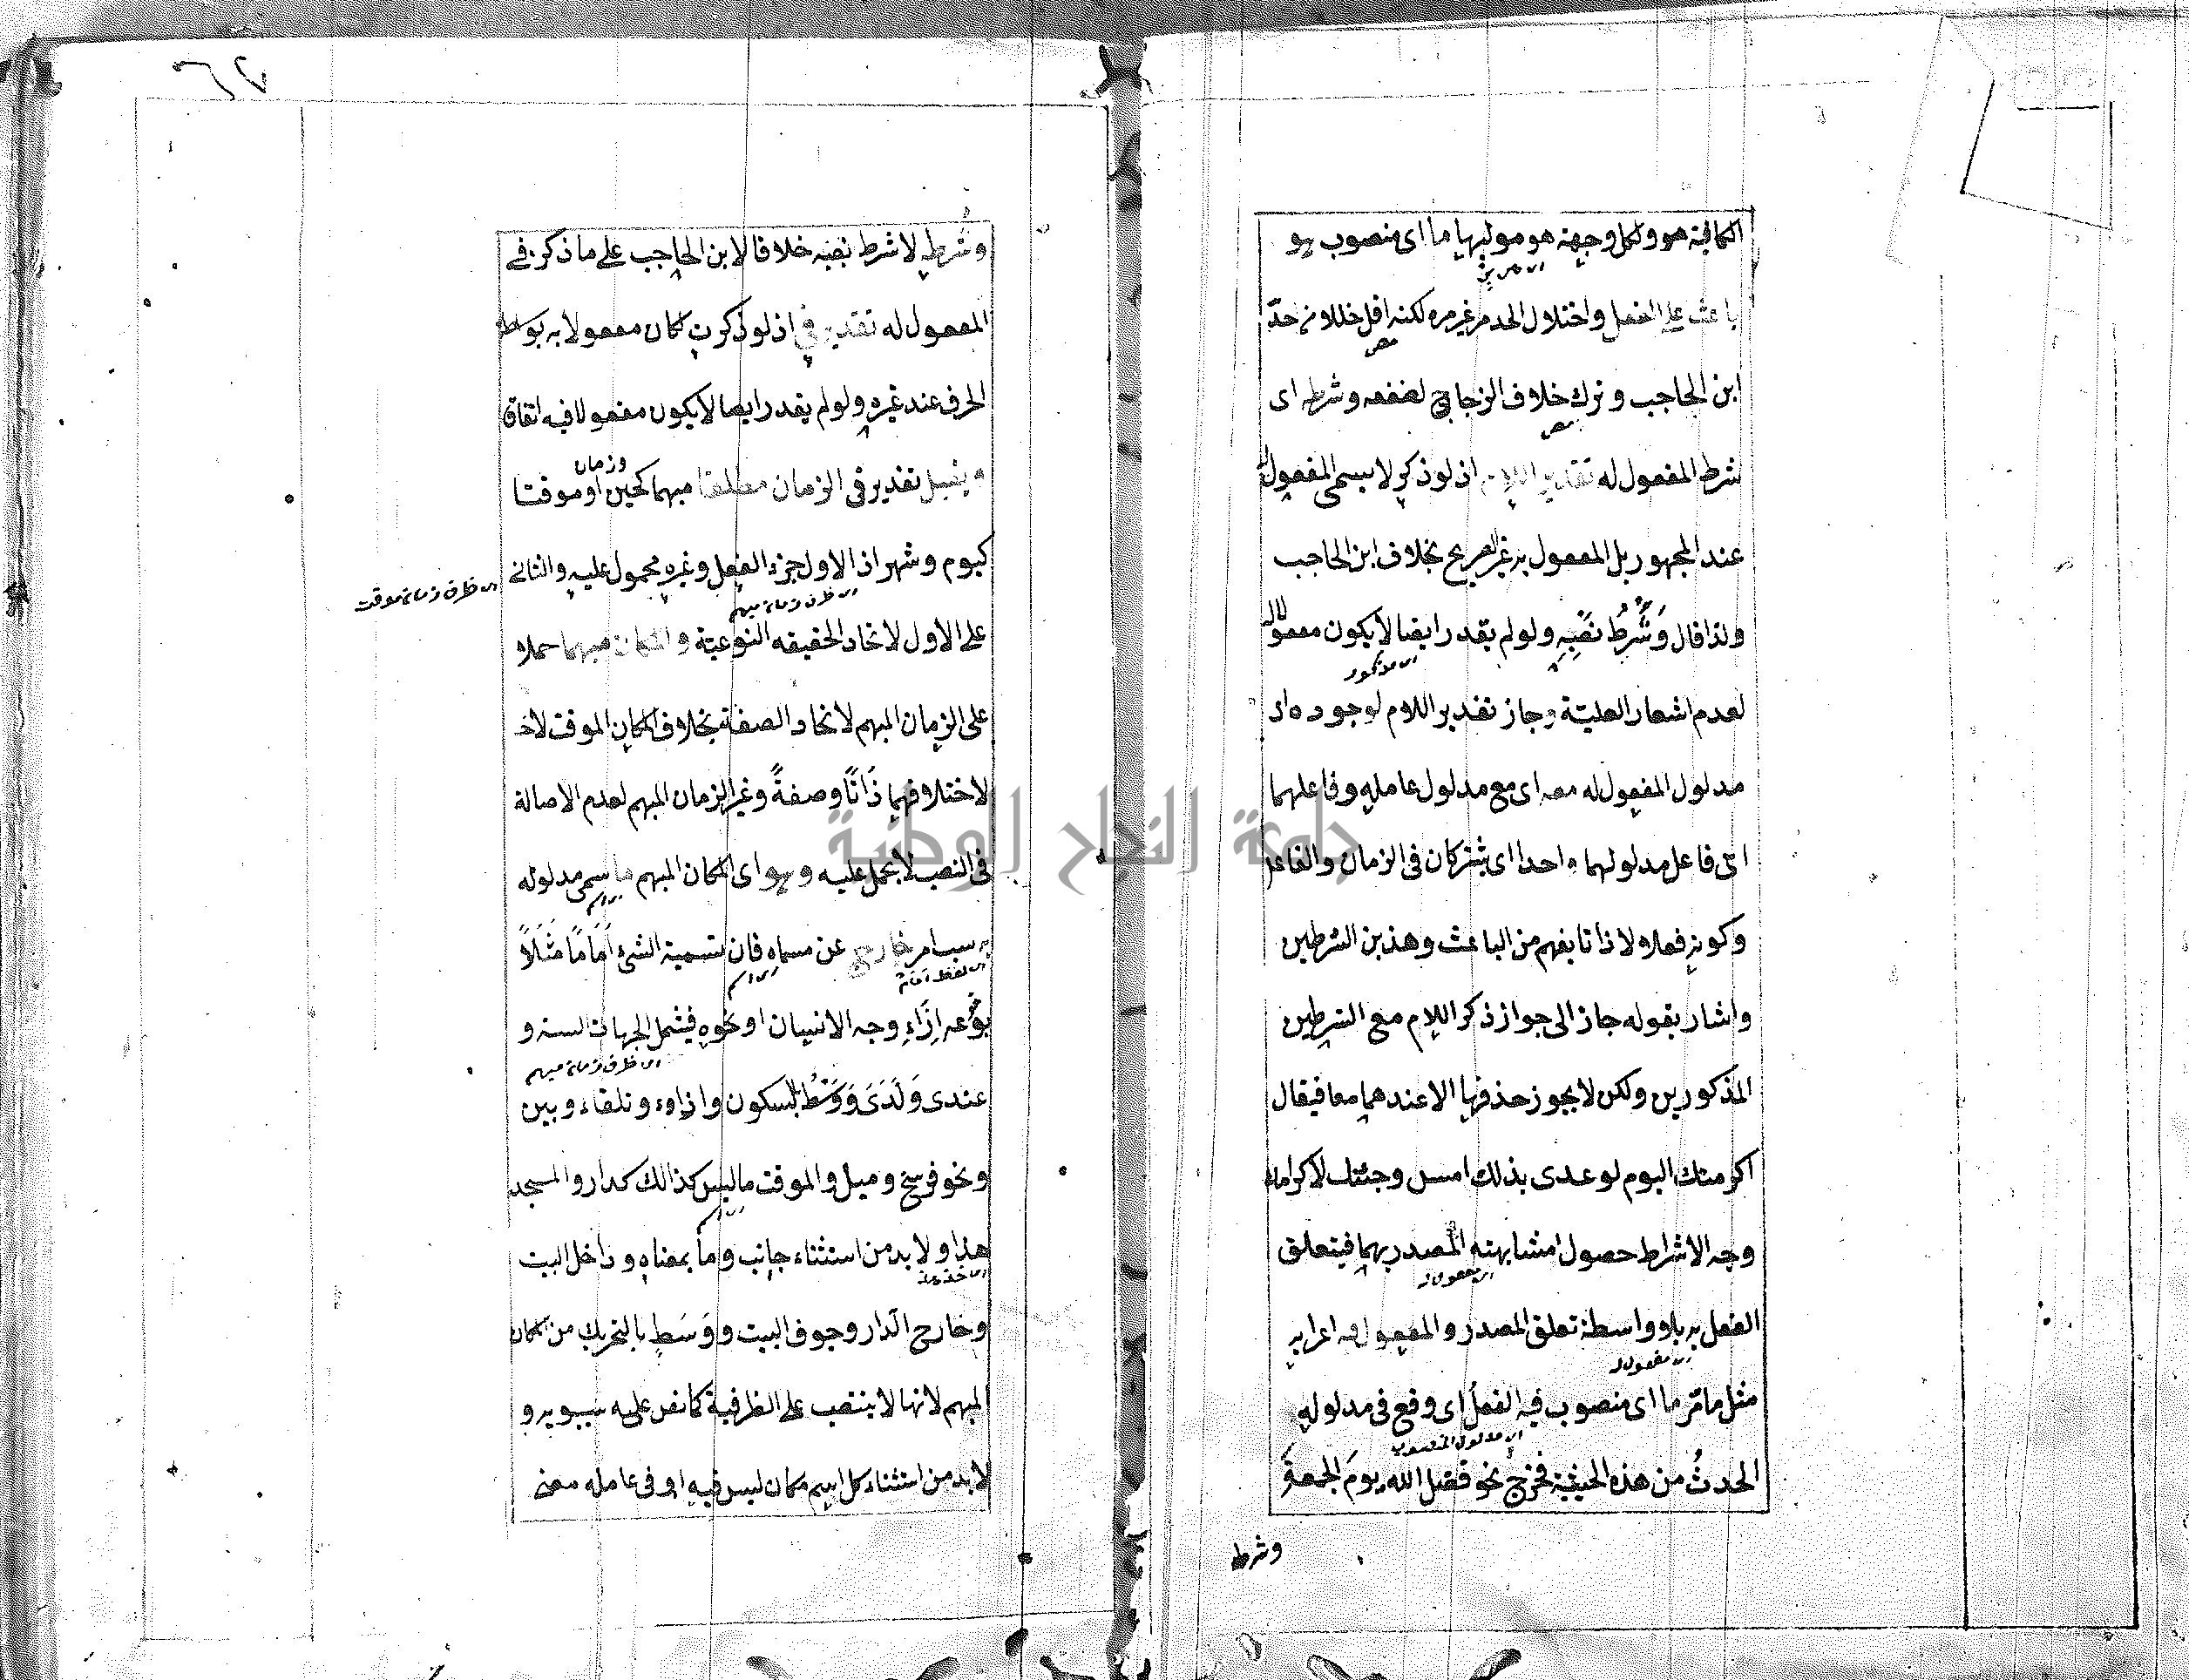 الكافية هو ولكل وجهة هو موليها ما اى منصوب هو
باعث على الفعل واختلال الحد مر غير مره لكنه اقل خللا من حدّ
ابن الحاجب وترك خلاف الزجاج لضعفه وشرطه اى
شرط المفعول له تقدير اللام اذ لو ذكر لا يسمى المفعول له
عند الجمهور بل المفعول به غير الصريح بخلاف ابن الحاجب
ولذا قال وَشَرْطُ نَصْبِهِ ولو لم يقدر ايضا لا يكون مفعولا له
لعدم اشعار العلية وجاز تقدير اللام لوجوده اى
مدلول المفعول له معه اى مع مدلول عامله وفاعلهما
اى فاعل مدلولهما واحدا اى يشتركان فى الزمان والفاعل
وكونه فعلا لا ذاتا يفهم من الباعث وهذين الشرطين
واشار بقوله جاز الى جواز ذكر اللام مع الشرطين
المذكورين ولكن لا يجوز حذفها الا عندهما معا فيقال
اكرمتك اليوم لوعدى بذلك امس وجئتك لاكرامك
وجه الاشراط حصول مشابهته المصدر بهما فيتعلق
الفعل به بلا واسطة تعلق المصدر والمفعول فيه اعرابه
مثل ما مرّ ما اى منصوب فيه الفعلُ اى وقع فى مدلوله
اى مدلول المنصوب
الحدثُ من هذه الحيثية فخرج نحو فضل الله يومَ الجمعةِ
وشرط
٦٧
وشرطه لا شرط نصبه خلافا لابن الحاجب على ما ذكره فى
المفعول له تقدير فى اذ لو ذكرت لكان مفعولا به بواسطة
الحرف عند غيره ولو لم يقدر ايضا لا يكون مفعولا فيه اتفاقا
ويقبل تقدير فى الزمان مطلقا مبهما كحين وزمان او موقتا
كيوم وشهر اذ الاول جزء الفعل وغيره محمول عليه والثانى
اى ظرف زمان موقت
اى ظرف زمان مبهم
على الاول لاتحاد الحقيقه النوعية والمكان مبهما حملا
على الزمان المبهم لاتحاد الصفة بخلاف المكان الموقت لاخـ
لاختلافهما ذَاتًا وصفةً وغير الزمان المبهم لعدم الاصالة
فى النصب لا يحمل عليه وهو اى المكان المبهم ما سمى مدلوله
به سبب امر خارج عن مسماه فان تسمية الشئ اَمَامًا مَثَلاً
بوقوعه اِزَاءِ وجه الانسان او نحوه فيشمل الجهات الستة و
اى ظرف زمان مبهم
عندى وَلَدَى وَوَسْط بالسكون وازاء وتلقاء وبين
ونحو فرسخ وميل والموقت ما ليس كذالك كدار والمسجد
هذا ولا بد من استثناء جانب وما بمعناه وداخل البيت
وخارج الدار وجوف البيت ووَسَطِ بالتحريك من المكان
المبهم لانها لا ينتصب على الظرفية كما نص عليه سيبويه و
لا بد من استثناء كل اسم مكان ليس فيه او فى عامله معنى
جامعة النجاح الوطنية